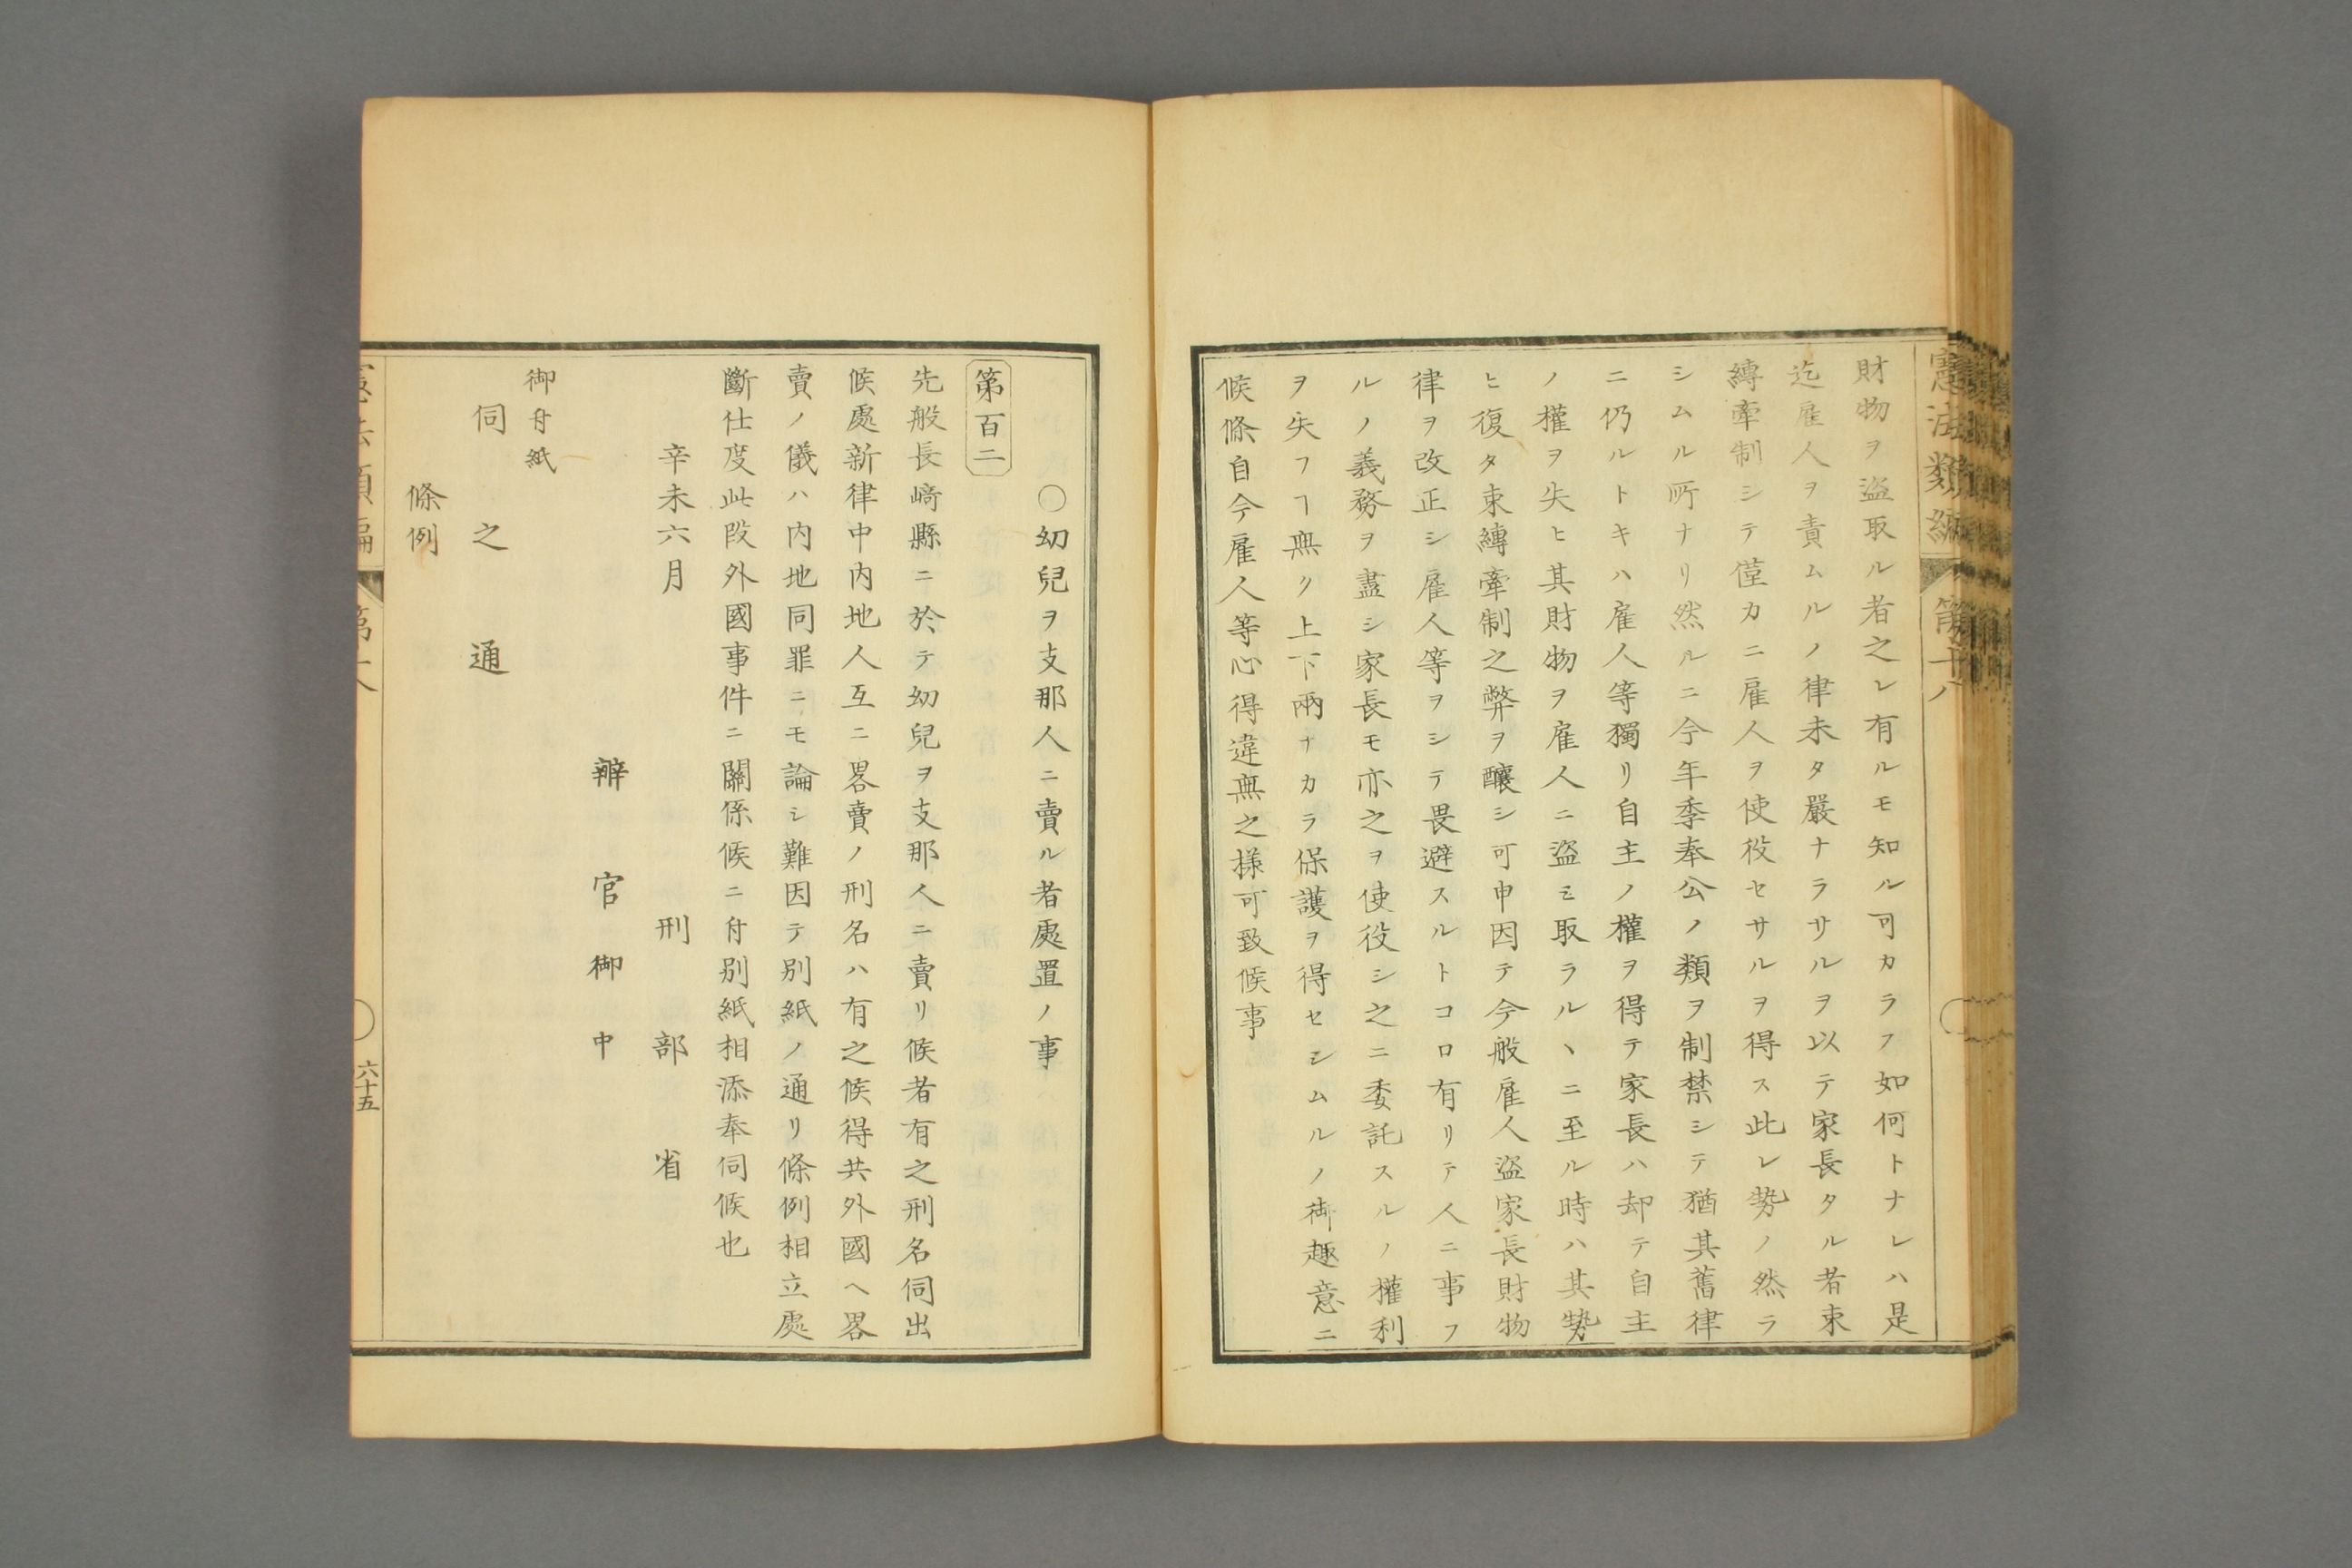 憲法類編 第十八
財物ヲ盜取ル者之レ有ルモ知ル可カラフ如何トナレハ是
迄雇人ヲ責ムルノ律未タ嚴ナラサルヲ以テ家長タル者束
縛牽制シテ僅カニ雇人ヲ使役セサルヲ得ス此レ勢ノ然ラ
シムル所ナリ然ルニ今年季奉公ノ類ヲ制禁シテ猶其舊律
ニ仍ルトキハ雇人等獨リ自主ノ權ヲ得テ家長ハ却テ自主
ノ權ヲ失ヒ其財物ヲ雇人ニ盜ミ取ラルヽニ至ル時ハ其勢
ヒ復タ束縛牽制之弊ヲ釀シ可申因テ今般雇人盜家長財物
律ヲ改正シ雇人等ヲシテ畏避スルトコロ有リテ人ニ事フ
ルノ義務ヲ盡シ家長モ亦之ヲ使役シ之ニ委託スルノ權利
ヲ失フヿ無ク上下兩ナカラ保護ヲ得セシムルノ御趣意ニ
候條自今雇人等心得違無之様可致候事
○幼兒ヲ支那人ニ賣ル者處置ノ事
第百二
先般長﨑縣ニ於テ幼兒ヲ支那人ニ賣リ候者有之刑名伺出
候處新律中内地人互ニ畧賣ノ刑名ハ有之候得共外國ヘ畧
賣ノ儀ハ内地同罪ニモ論シ難因テ別紙ノ通リ條例相立處
斷仕度此段外國事件ニ關係候ニ付別紙相添奉伺候也
辛未六月 刑部省
辨官御中
御付紙
伺之通
條例
六十五